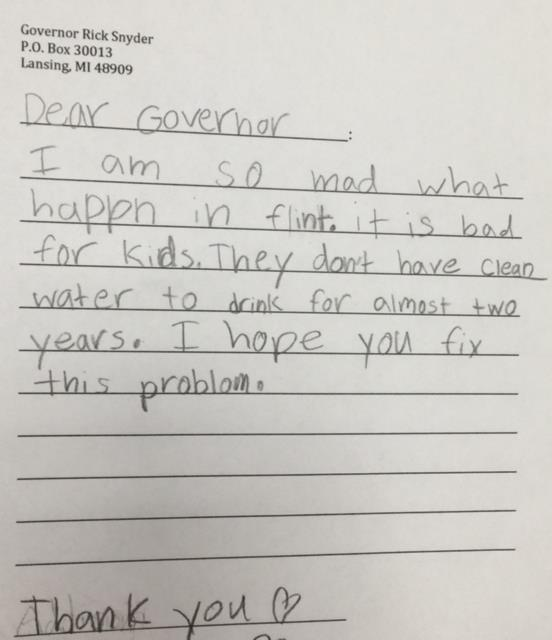 Governor Rick Snyder
P.O. Box 30013
Lansing, MI 48909
Dear Governor :
I am so mad what
happn in flint. it is bad
for kids. They don't have clean
water to drink for almost two
years. I hope you fix
this problom.
Thank you ♡